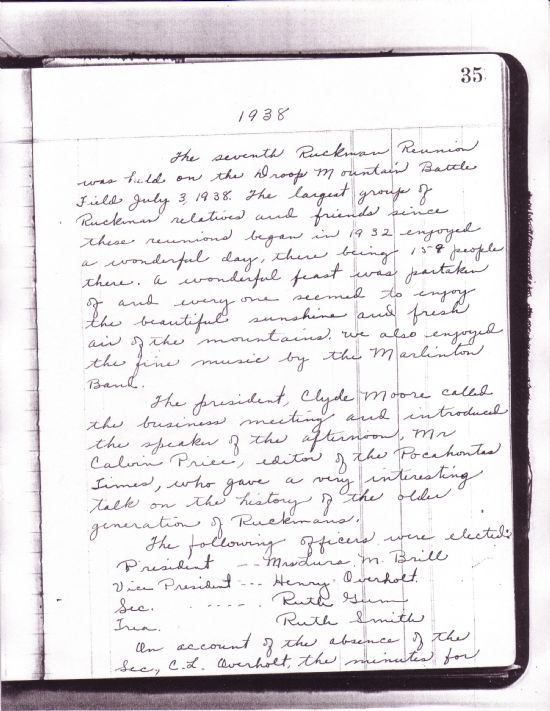 35
1938
The seventh Ruckman Reunion
was held on the Droop Mountain Battle
Field July 3, 1938. The largest group of
Ruckman relatives and friends since
these reunions began in 1932 enjoyed
a wonderful day, there being 158 people
there. A wonderful feast was partaken
of and every one seemed to enjoy
the beautiful sunshine and fresh
air of the mountains. We also enjoyed
the fine music by the Marlinton
Band.
The president, Clyde Moore called
the business meeting and introduced
the speaker of the afternoon, Mr
Calvin Price, editor of the Pocahontas
Times, who gave a very interesting
talk on the history of the older
generation of Ruckmans.
The following officers were elected:
President -- Mrs M. Brill
Vice President --- Henry Overholt.
Sec. ..... Ruth Gum
Trea. Ruth Smith
On account of the absence of the
Sec., C.L. Overholt, the minutes for